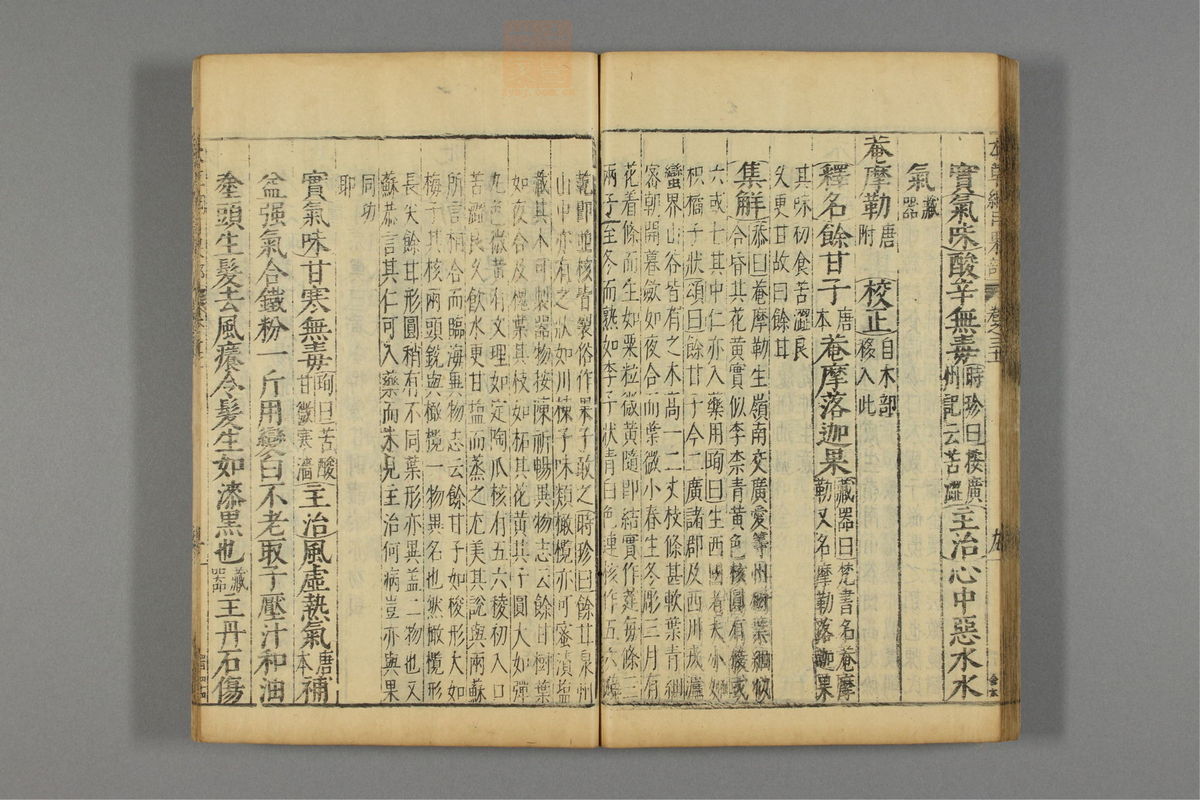 實氣味酸辛無毒時珍曰棱廣州記云苦澀主治心中惡水水
氣藏器
菴摩勒唐附校正自木部移入此
釋名餘甘子唐本菴摩落迦果藏器曰梵書名菴摩勒又名摩勒落迦果
其味初食苦澀良
久更甘故曰餘甘
集解恭曰菴摩勒生嶺南交廣愛等州樹葉細似
合昏其花黃實似李柰青黃色核圓有稜或
六或七其中仁亦入藥用珣曰生西國者大小如
枳橘子狀頌曰餘甘子今二廣諸郡及西川戎瀘
蠻界山谷皆有之木高一二丈枝條甚軟葉青細
密朝開暮斂如夜合而葉微小春生冬彫三月有
花着條而生如粟粒微黃隨即結實作莢每條三
兩子至冬而熟如李子狀青白色連核作五六瓣
乾即並核皆裂俗作果子啖之時珍曰餘甘泉州
山中亦有之狀如川楝子味類橄欖亦可蜜漬鹽
藏其木可製器物按陳祈暢異物志云餘甘樹葉
如夜合及槐葉其枝如柘其花黃其子圓大如彈
丸色微黃有文理如定陶瓜核有五六稜初入口
苦澀良久飲水更甘鹽而蒸之尤美其說與兩蘇
所言相合而臨海異物志云餘甘子如梭形大如
梅子其核兩頭銳與橄欖一物異名也然橄欖形
長尖餘甘形圓稍有不同葉形亦異蓋二物也又
蘇恭言其仁可入藥而未見主治何病豈亦與果
同功
耶
實氣味甘寒無毒珣曰苦酸甘微寒濇主治風虛熱氣唐本補
益强氣合鐵粉一斤用變白不老取子壓汁和油
塗頭生髮去風癢令髮生如漆黑也藏器主丹石傷